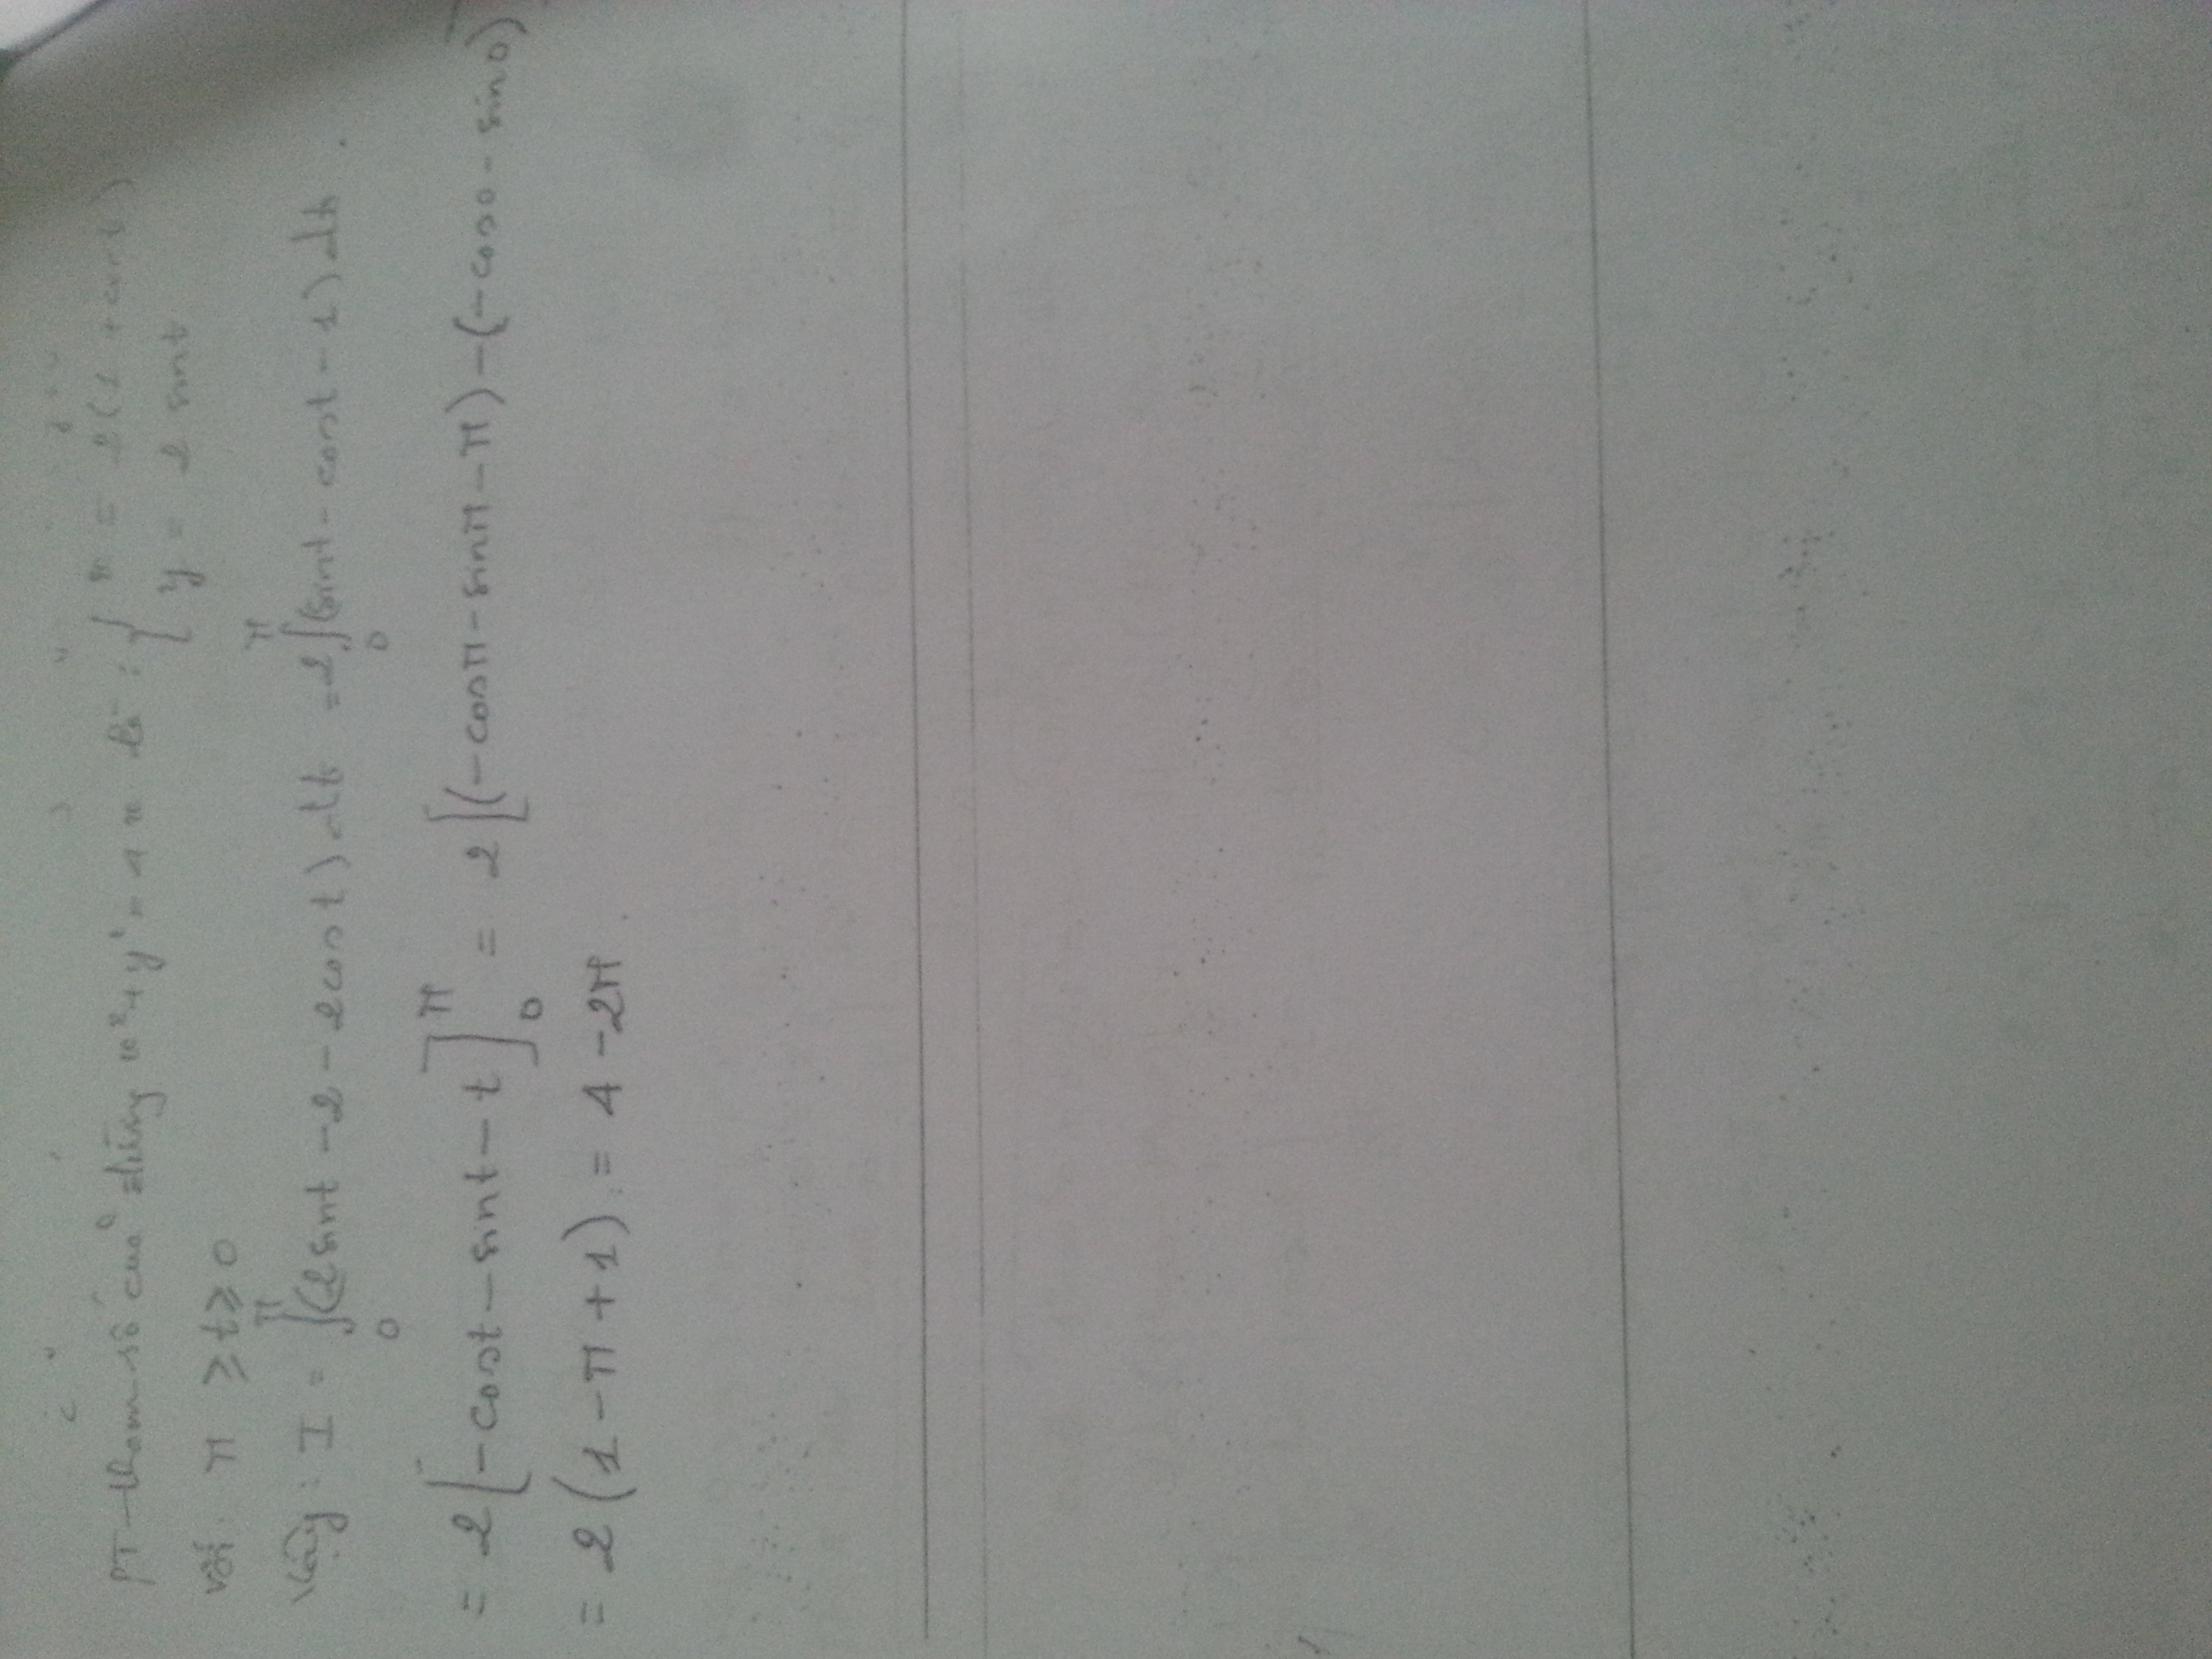 PT tham số của đường x² + y² = 4x là : { x = 2(1 + cost)
y = 2 sint
với π ≥ t ≥ 0
Vậy : I = ∫₀^π (2sint - 2 - 2cost) dt = 2∫₀^π (sint - cost - 1) dt .
= 2 [-cost - sint - t]₀^π = 2 [(-cosπ - sinπ - π) - (-cos0 - sin0)]
= 2 (1 - π + 1) = 4 - 2π .